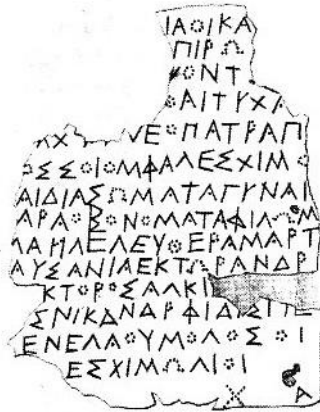 ΙΑΟΙΚΑ
ΠΙΡΩ
ΟΝΤ
ΟΑΙΤΥΧΑ
ΛΧ ΝΕΟΠΑΤΡΑΠ
ΟΣΣΟΙΟΜΦΑΛΕΣΧΙΜ
ΑΙΔΙΑΣΩΜΑΤΑΓΥΝΑΙ
ΑΡΑΟΣΟΝΟΜΑΤΑΦΙΛΩΜ
ΛΑΗΛΕΛΕΥΘΕΡΑΜΑΡΤ
ΑΥΣΑΝΙΑΕΚΤΩΡΑΝΔΡ
ΚΤΟΡΟΣΑΛΚΙ
ΣΝΙΚΑΝΔΡΦΙΔΑ
ΕΝΕΛΑΟΥΜΟΛΟΣΟΙ
ΕΣΧΙΜΩΛΙΟΙ
Χ Α